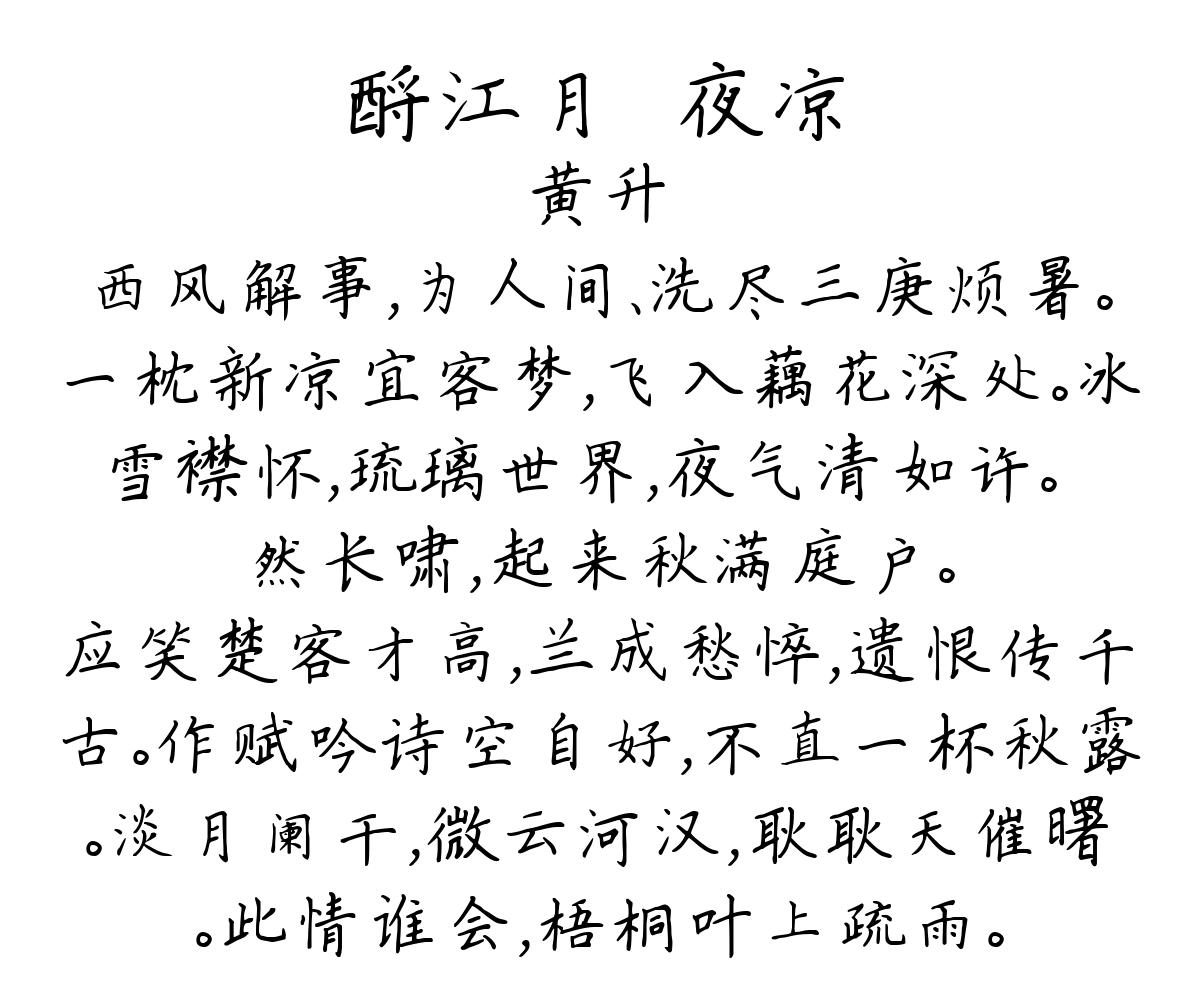 酹江月 夜凉
黄升
西风解事,为人间、洗尽三庚烦暑。
一枕新凉宜客梦,飞入藕花深处。冰
雪襟怀,琉璃世界,夜气清如许。
然长啸,起来秋满庭户。
应笑楚客才高,兰成愁悴,遗恨传千
古。作赋吟诗空自好,不直一杯秋露
。淡月阑干,微云河汉,耿耿天催曙
。此情谁会,梧桐叶上疏雨。